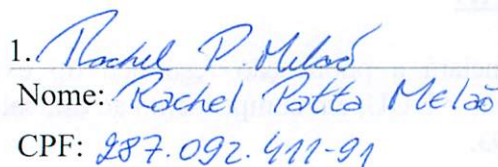 1. Rachel P. Melaõ
Nome: Rachel Patta Melaõ
CPF: 287.092.411-91